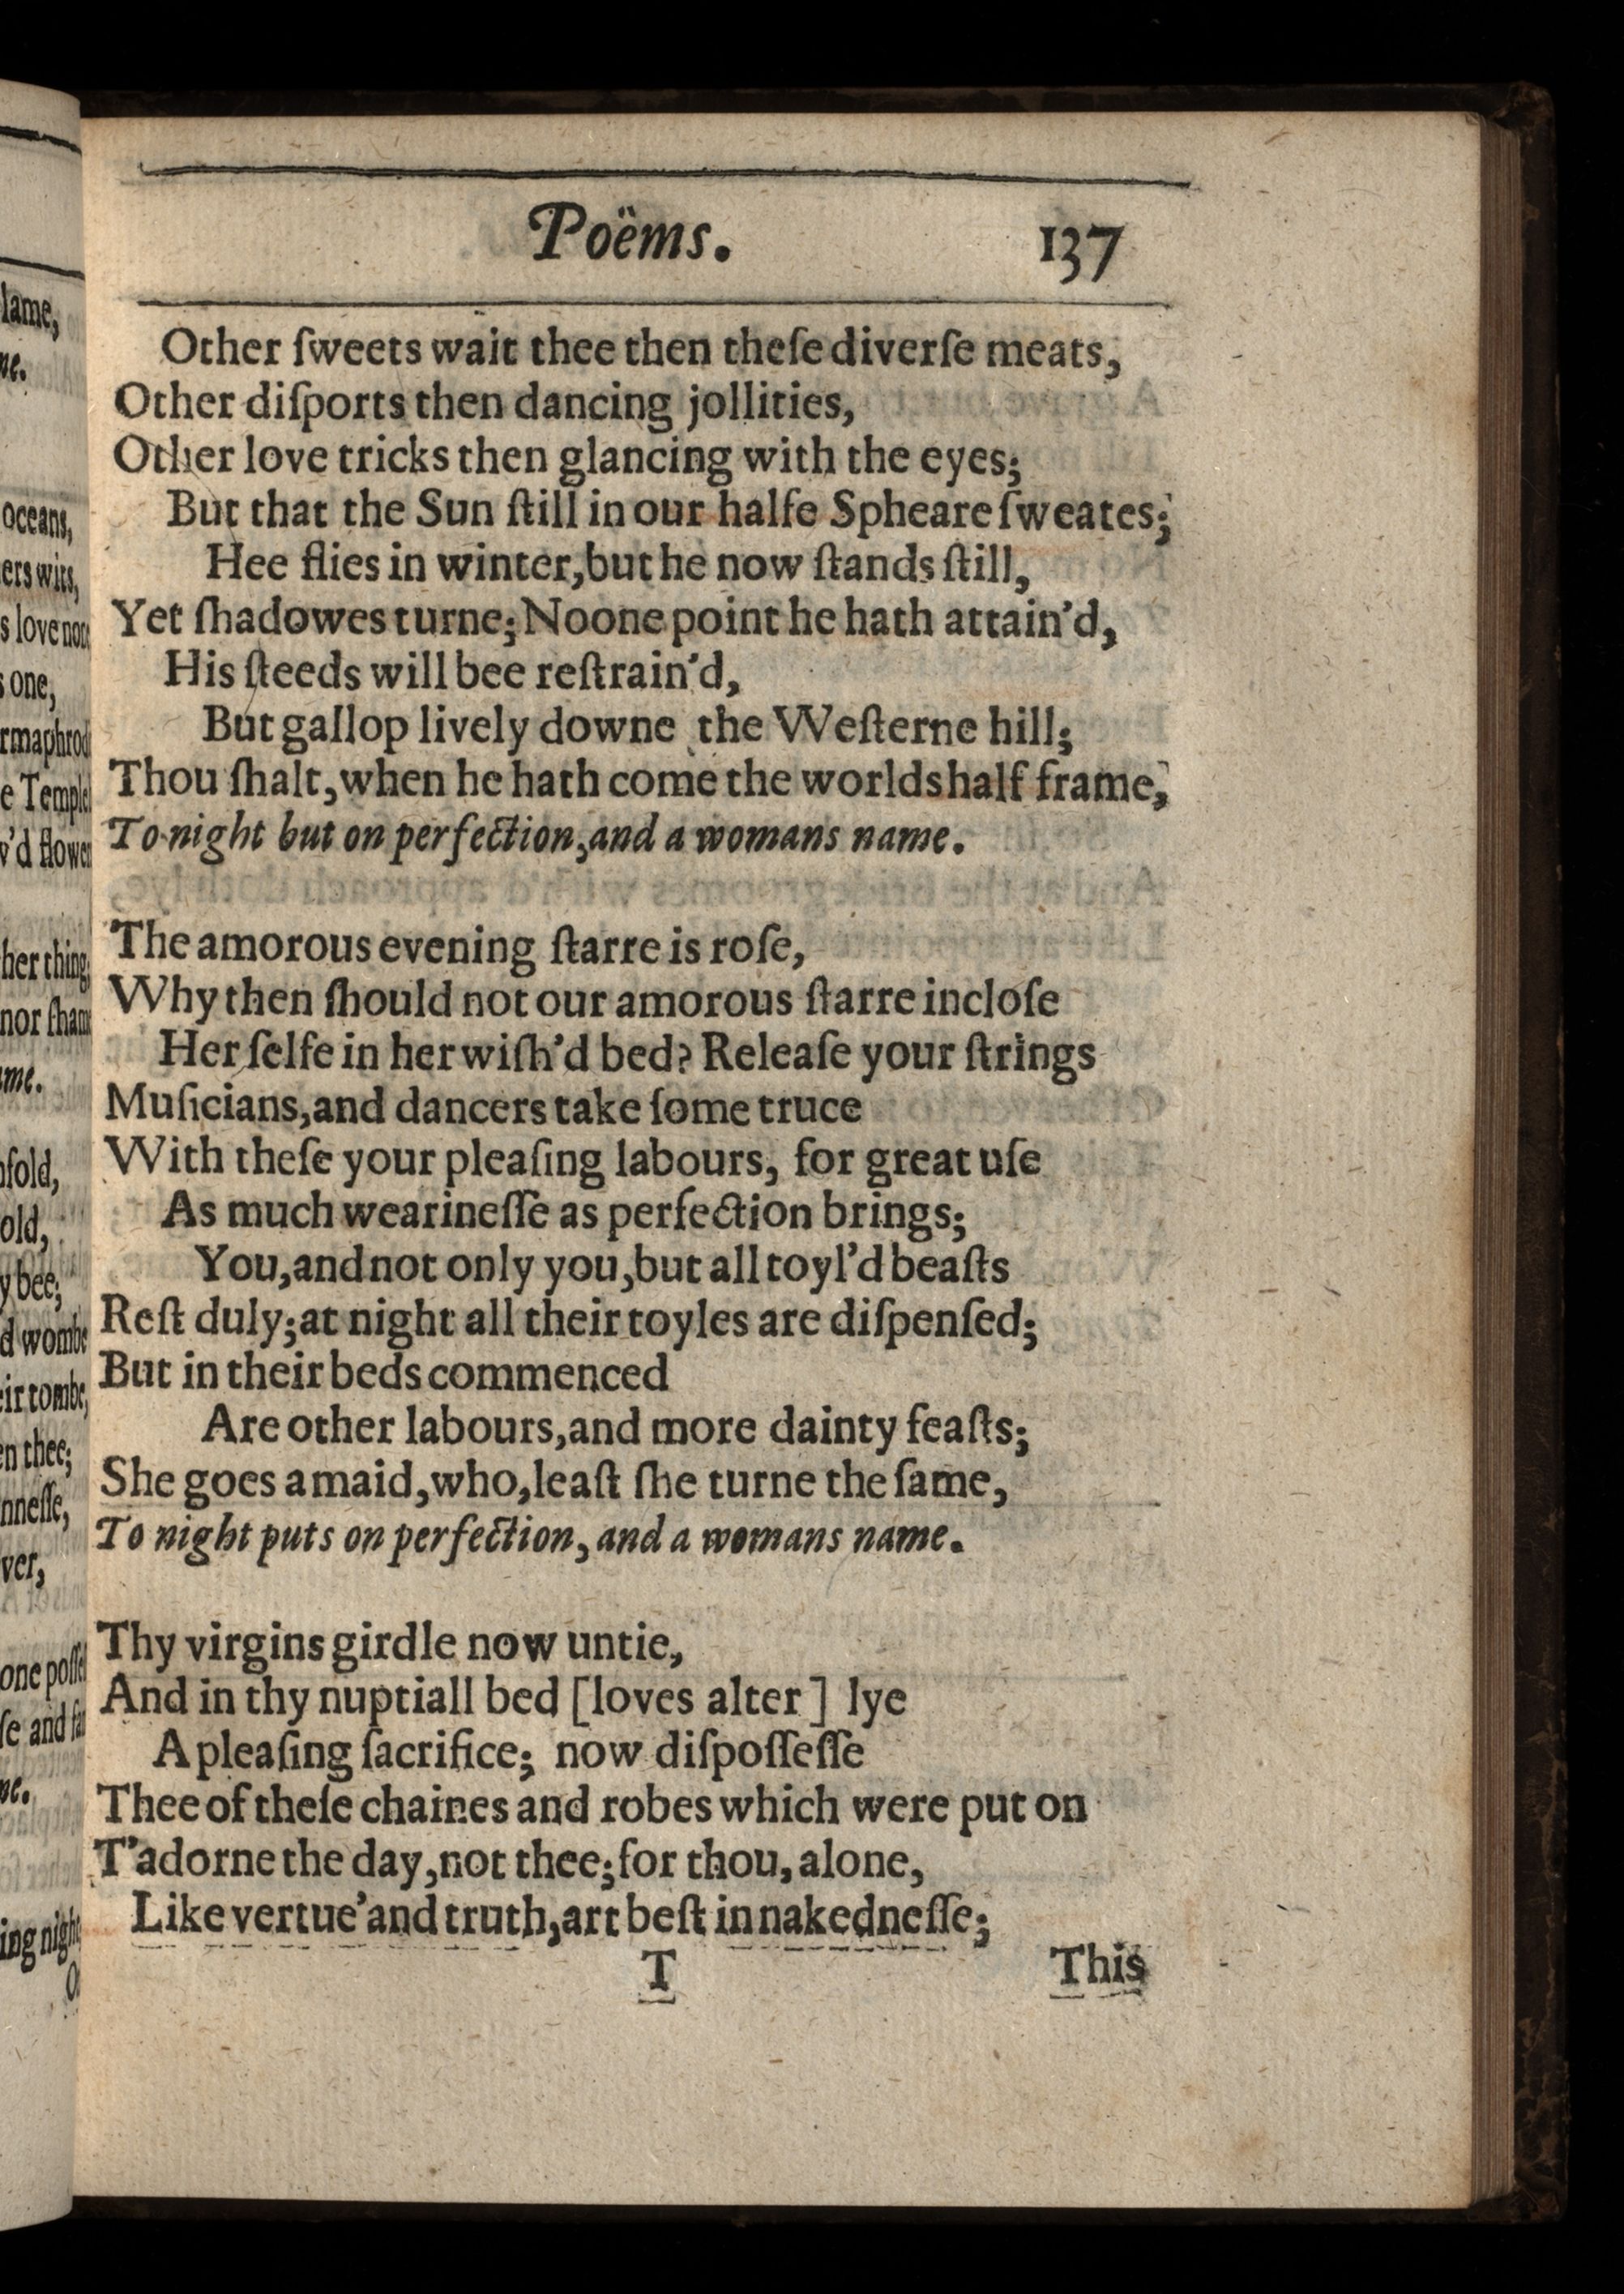 Poëms. 137
Other ſweets wait thee then theſe diverſe meats,
Other diſports then dancing jollities,
Other love tricks then glancing with the eyes;
But that the Sun ſtill in our halfe Spheare ſweates;
Hee flies in winter, but he now ſtands ſtill,
Yet ſhadowes turne; Noone point he hath attain'd,
His ſteeds will bee reſtrain'd,
But gallop lively downe the Weſterne hill;
Thou ſhalt, when he hath come the worlds half frame,
To night but on perfection, and a womans name.
The amorous evening ſtarre is roſe,
Why then ſhould not our amorous ſtarre incloſe
Her ſelfe in her wiſh'd bed? Releaſe your ſtrings
Muſicians, and dancers take ſome truce
With theſe your pleaſing labours, for great uſe
As much wearineſſe as perfection brings;
You, and not only you, but all toyl'd beaſts
Reſt duly; at night all their toyles are diſpenſed;
But in their beds commenced
Are other labours, and more dainty feaſts;
She goes a maid, who, leaſt ſhe turne the ſame,
To night puts on perfection, and a womans name.
Thy virgins girdle now untie,
And in thy nuptiall bed [loves alter] lye
A pleaſing ſacrifice; now diſpoſſeſſe
Thee of theſe chaines and robes which were put on
T'adorne the day, not thee; for thou, alone,
Like vertue'and truth, art beſt in nakedneſſe;
T This
lame,
ne.
oceans,
ers wits,
s love
one,
e Temple
v'd
her thing
nor
me.
old,
y bee;
d wombe
eir tombe,
en thee;
nneſſe,
ver,
one
ſe and
ne.
ing night